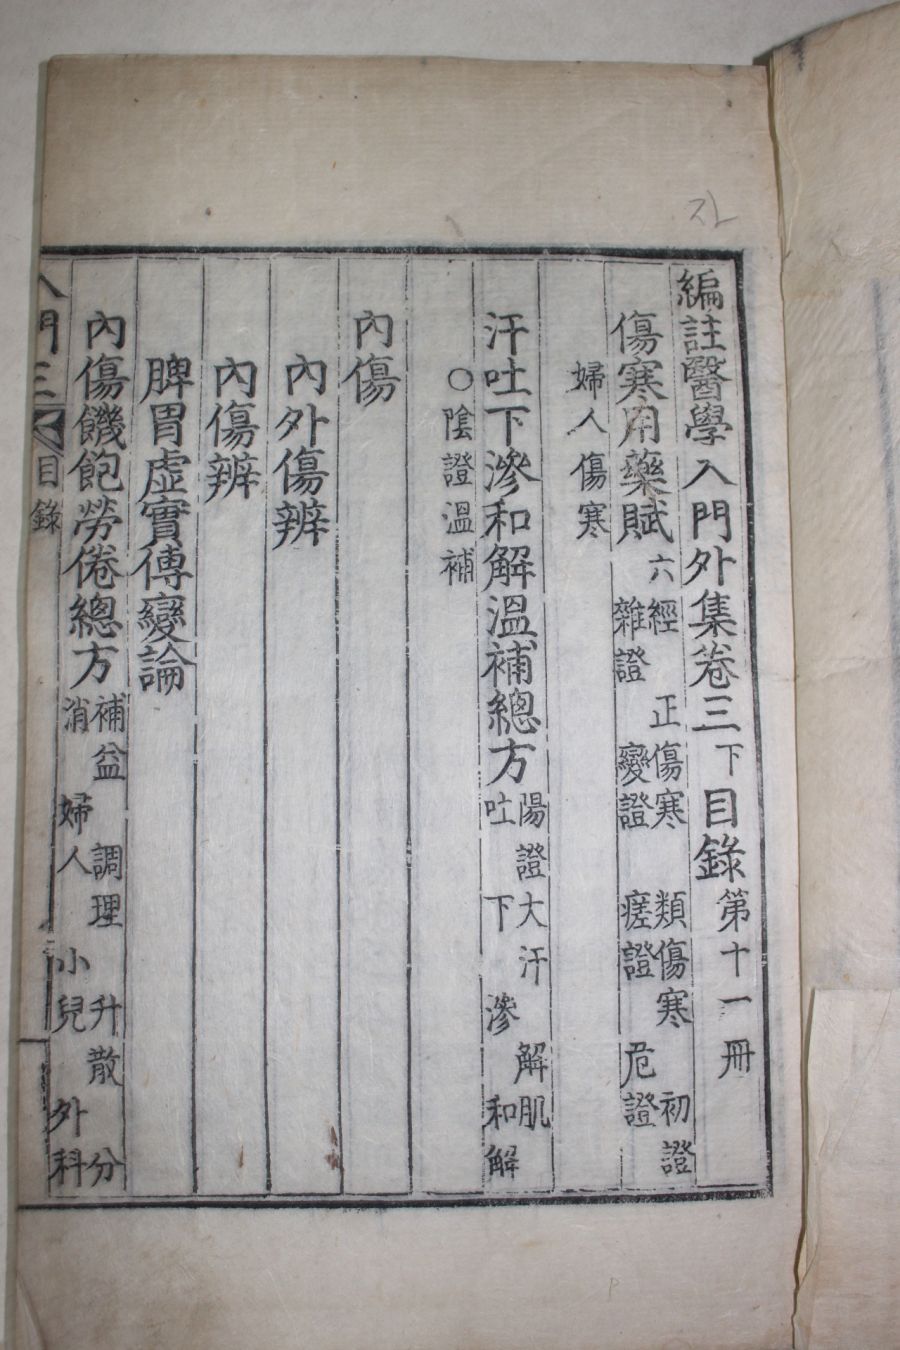 자
編註醫學入門外集卷三下目錄第十一册
傷寒用藥賦 六經 正傷寒 類傷寒 初證
雜證 變證 瘥證 危證
婦人傷寒
汗吐下滲和解溫補總方 陽證大汗 解肌
吐 下 滲 和解
○陰證溫補
內傷
內外傷辨
內傷辨
脾胃虛實傳變論
內傷饑飽勞倦總方 補益 調理 升散 分
消 婦人 小兒 外科
入門三 目錄